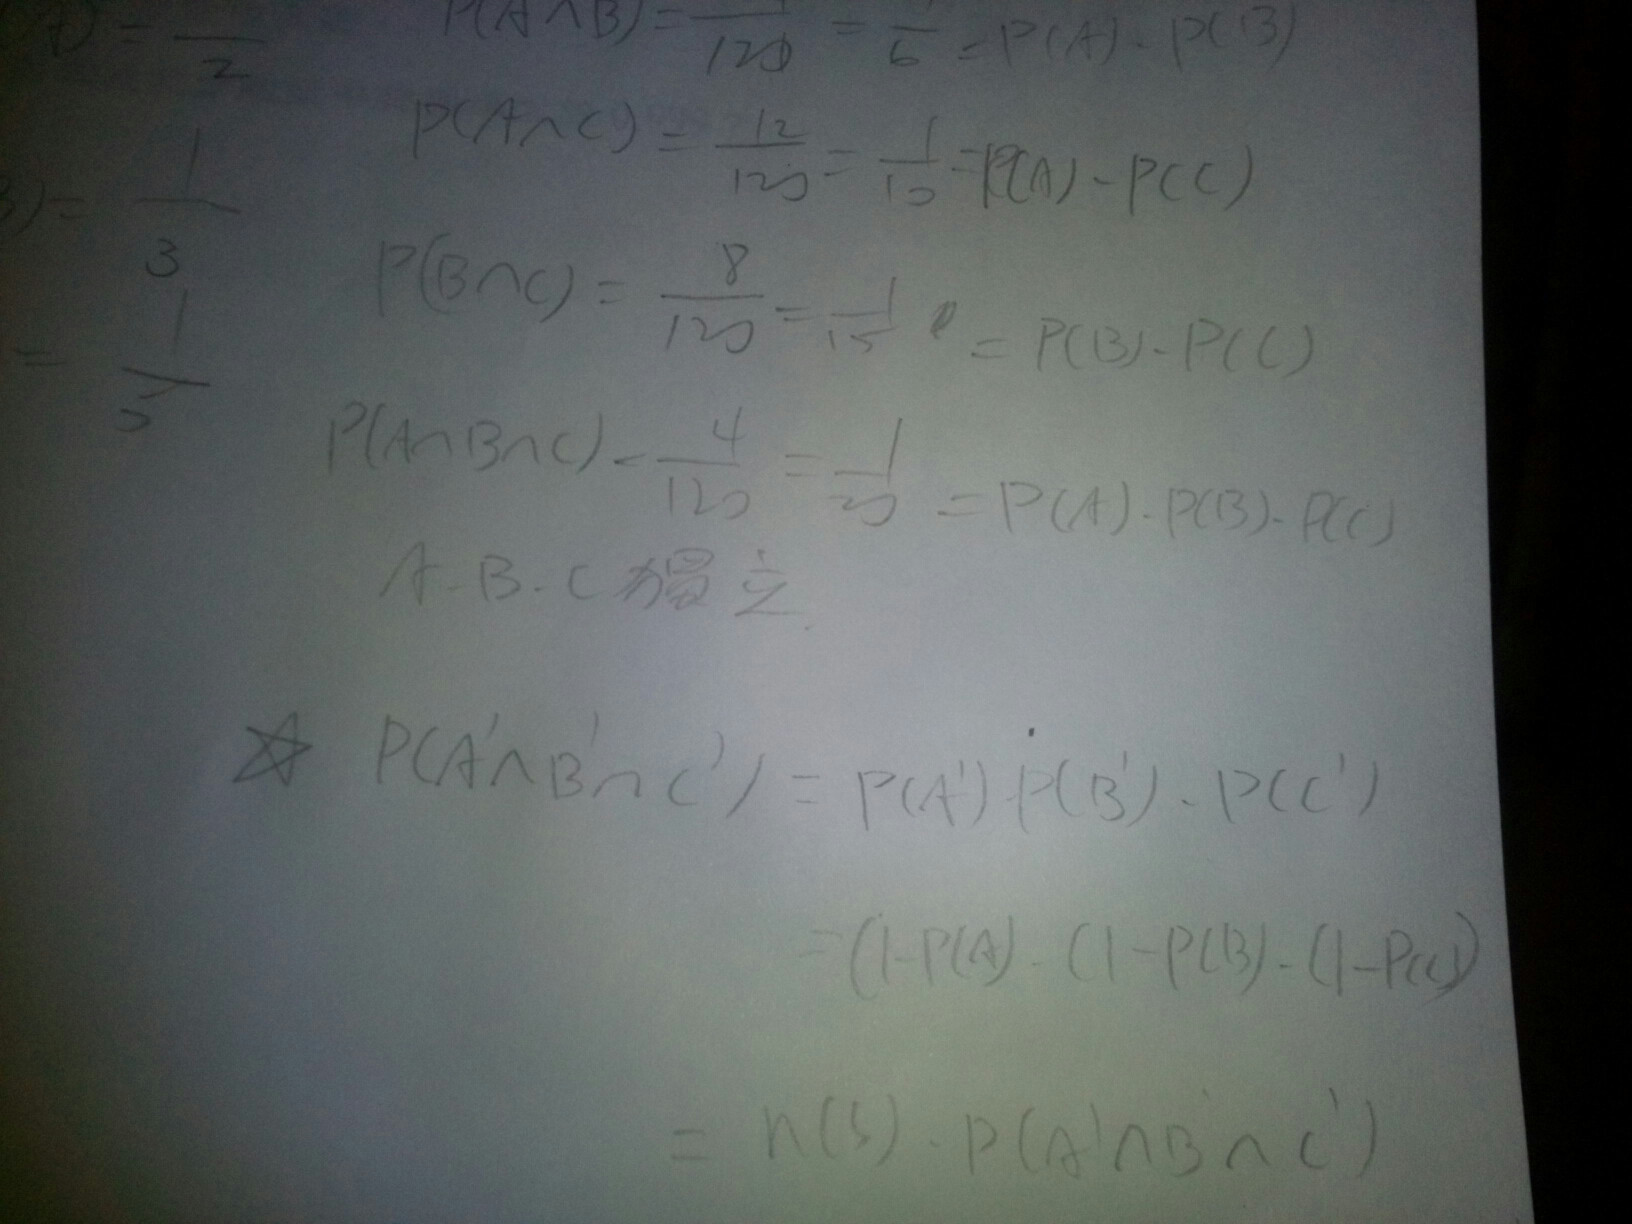 A) = — 2
P(A∩B) = — 120 = — 6 = P(A)·P(B)
P(A∩C) = 12/120 = 1/10 = P(A)·P(C)
B) = 1/3
P(B∩C) = 8/120 = 1/15 = P(B)·P(C)
= 1/5
P(A∩B∩C) = 4/120 = 1/30 = P(A)·P(B)·P(C)
A.B.C 獨立
☆ P(A'∩B'∩C') = P(A')·P(B')·P(C')
= (1-P(A)·(1-P(B)·(1-P(C))
= n(S)·P(A'∩B'∩C')